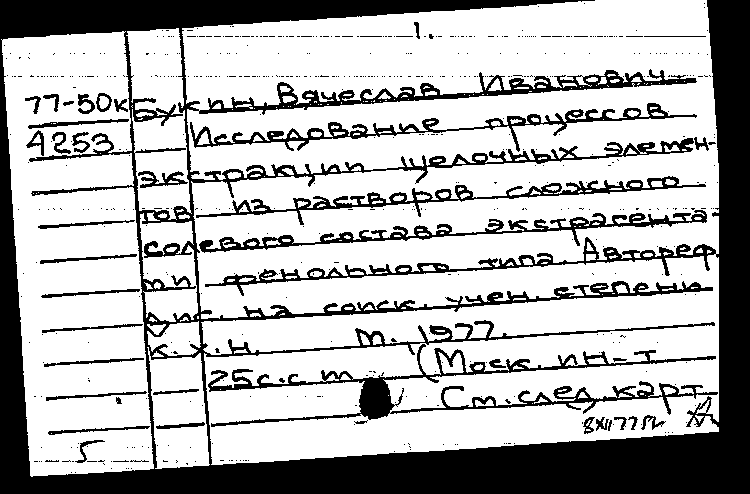 1.
77-50к Букин, Вячеслав Иванович
4253 Исследование процессов
экстракции щелочных элемен-
тов из растворов сложного
солевого состава экстрагента-
ми фенольного типа. Автореф.
дис. на соиск. учен. степени
к. х. н. М., 1977.
25с. с м (Моск. ин-т
См. след. карт
5